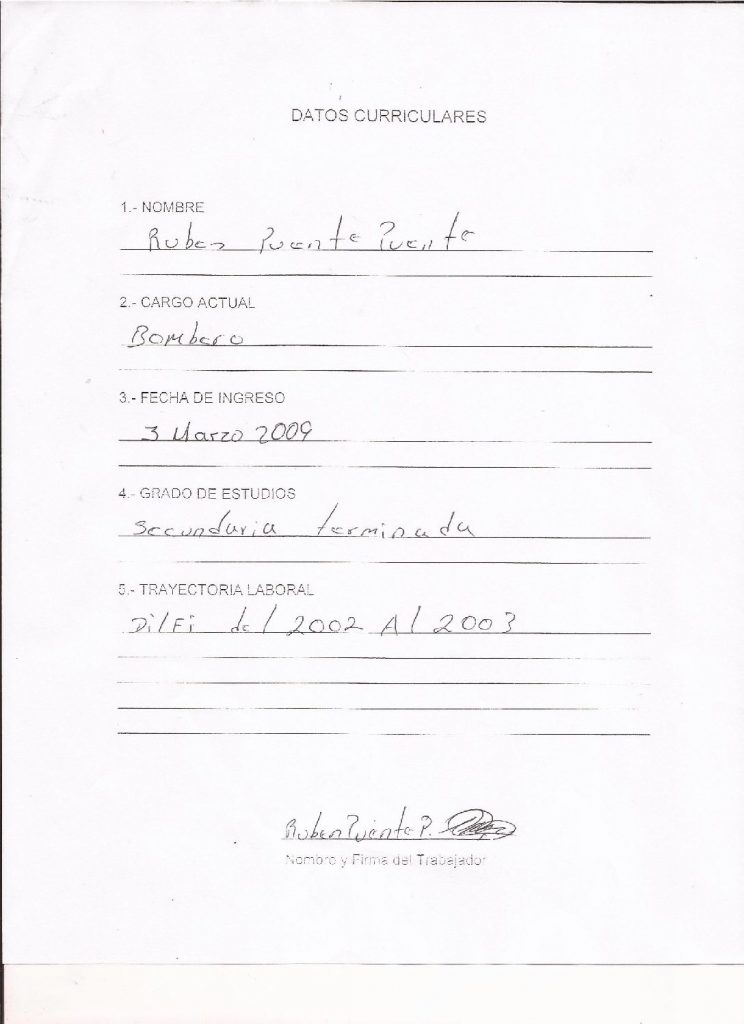 DATOS CURRICULARES
1.- NOMBRE
Ruben Puente Puente
2.- CARGO ACTUAL
Bombero
3.- FECHA DE INGRESO
3 Marzo 2009
4.- GRADO DE ESTUDIOS
Secundaria terminada
5.- TRAYECTORIA LABORAL
Dilfi del 2002 Al 2003
Ruben Puente P.
Nombre y Firma del Trabajador